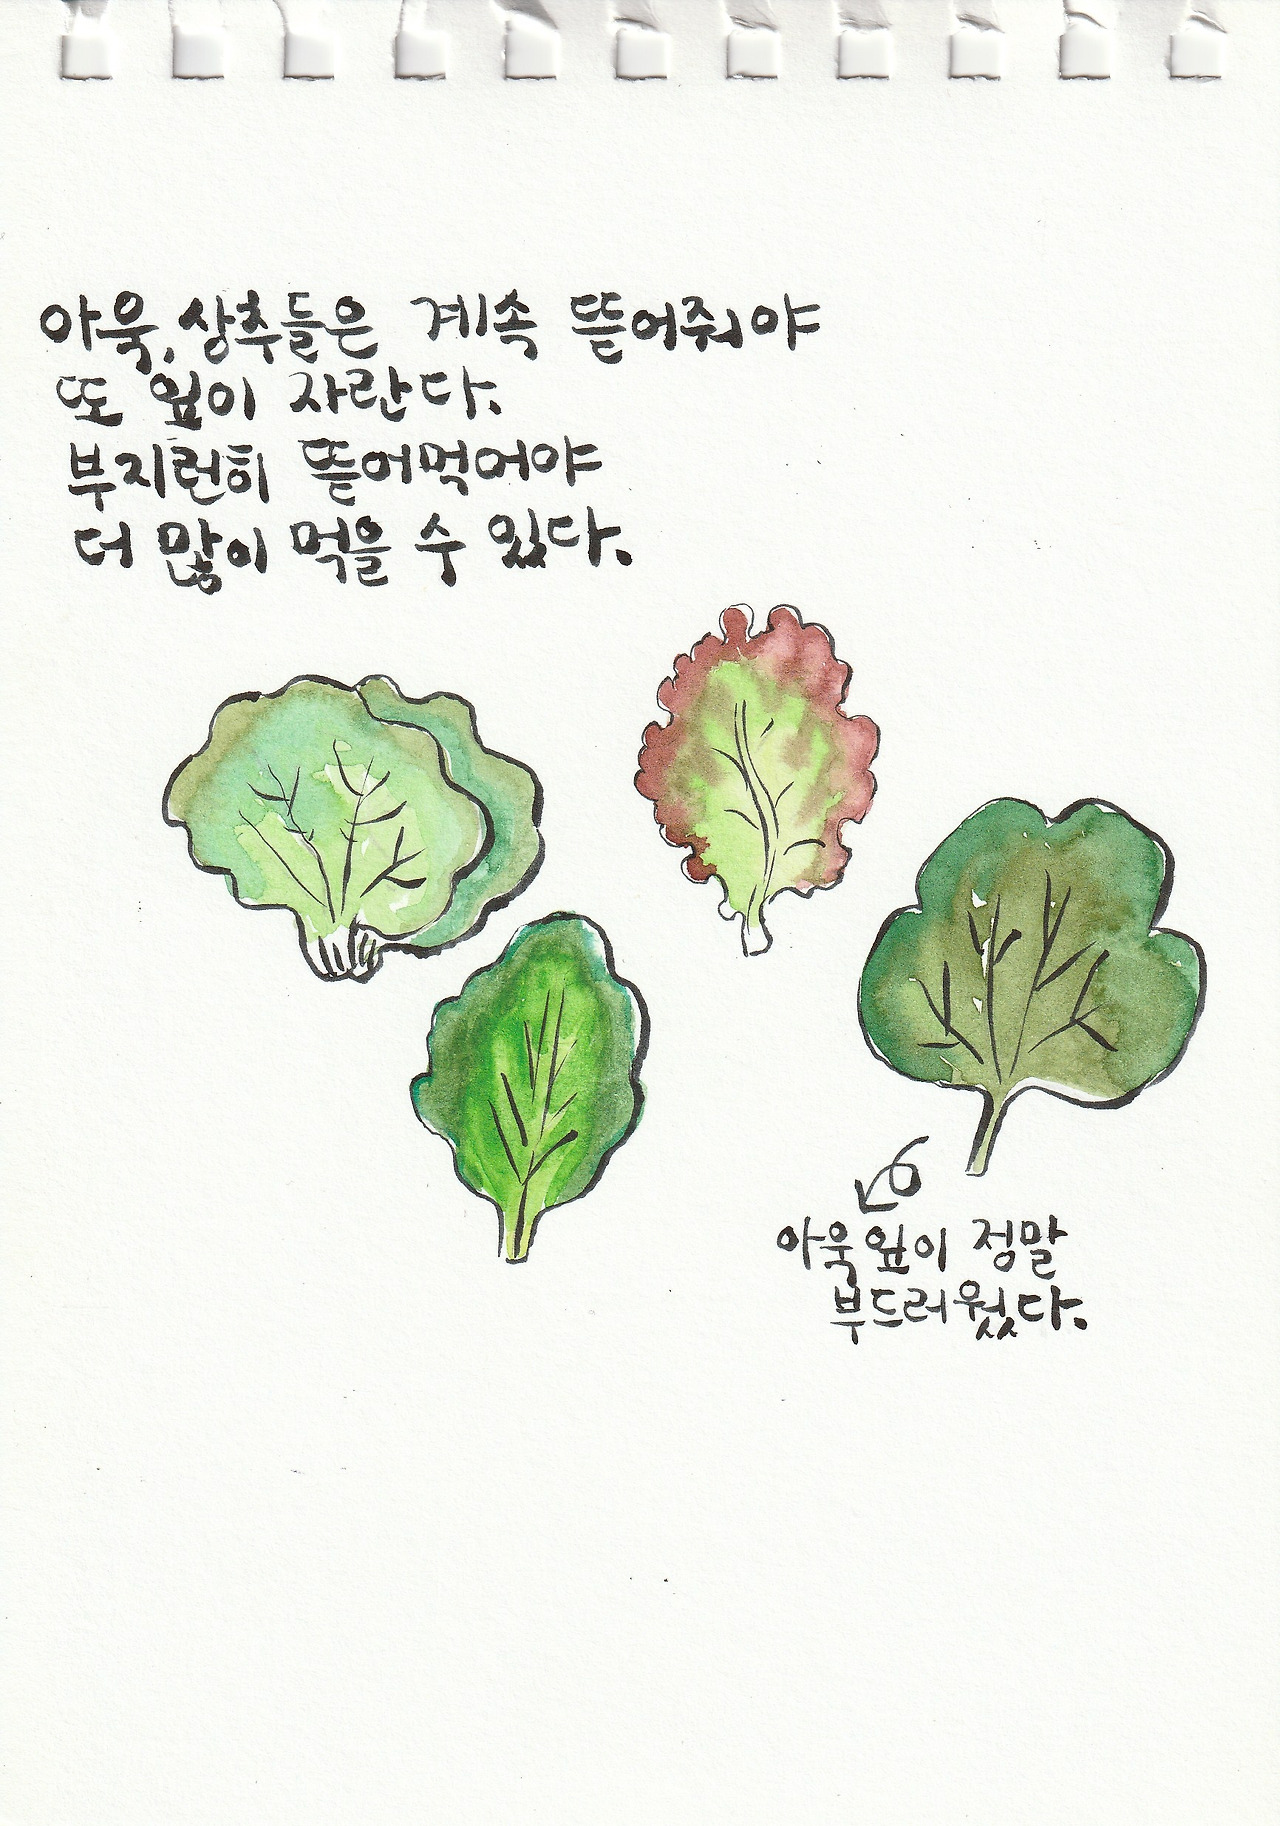 아욱, 상추들은 계속 뜯어줘야
또 잎이 자란다.
부지런히 뜯어먹어야
더 많이 먹을 수 있다.
아욱잎이 정말
부드러웠다.